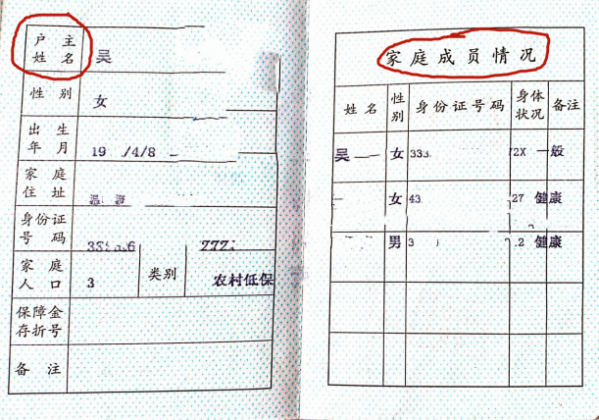 户主姓名 吴
性别 女
出生年月 19 /4/8
家庭住址
身份证号码
家庭人口 3 类别 农村低保
保障金存折号
备注
家庭成员情况
姓名 性别 身份证号码 身体状况 备注
吴 女 333 2X 一般
女 43 27 健康
男 3 .2 健康